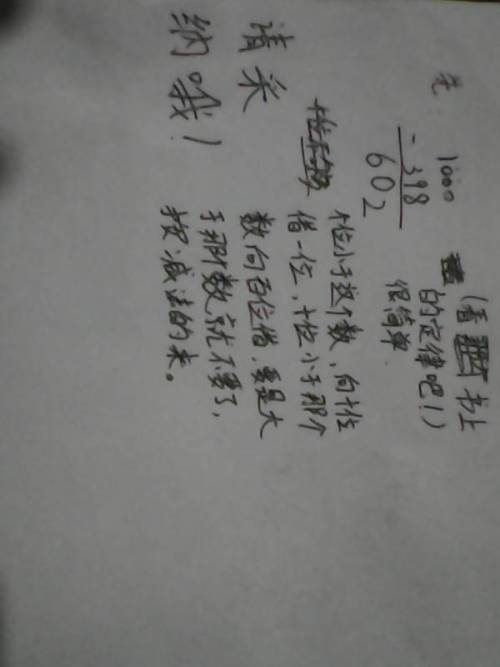 先: 1000
- 398
602
(看书上
的定律吧!)
很简单.
个位小于这个数,向十位
借一位,十位小于那个
数向百位借.要是大
于那个数就不要了,
按减法的来。
请采
纳哦!